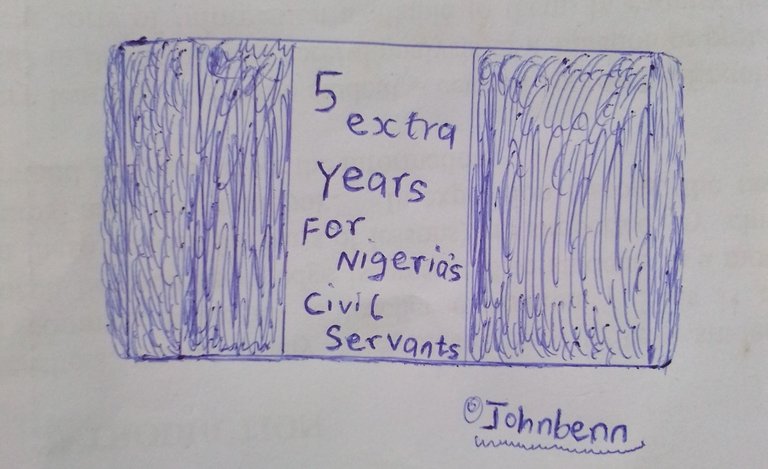 5
extra
Years
For
Nigeria's
Civil
Servants
©Johnbenn